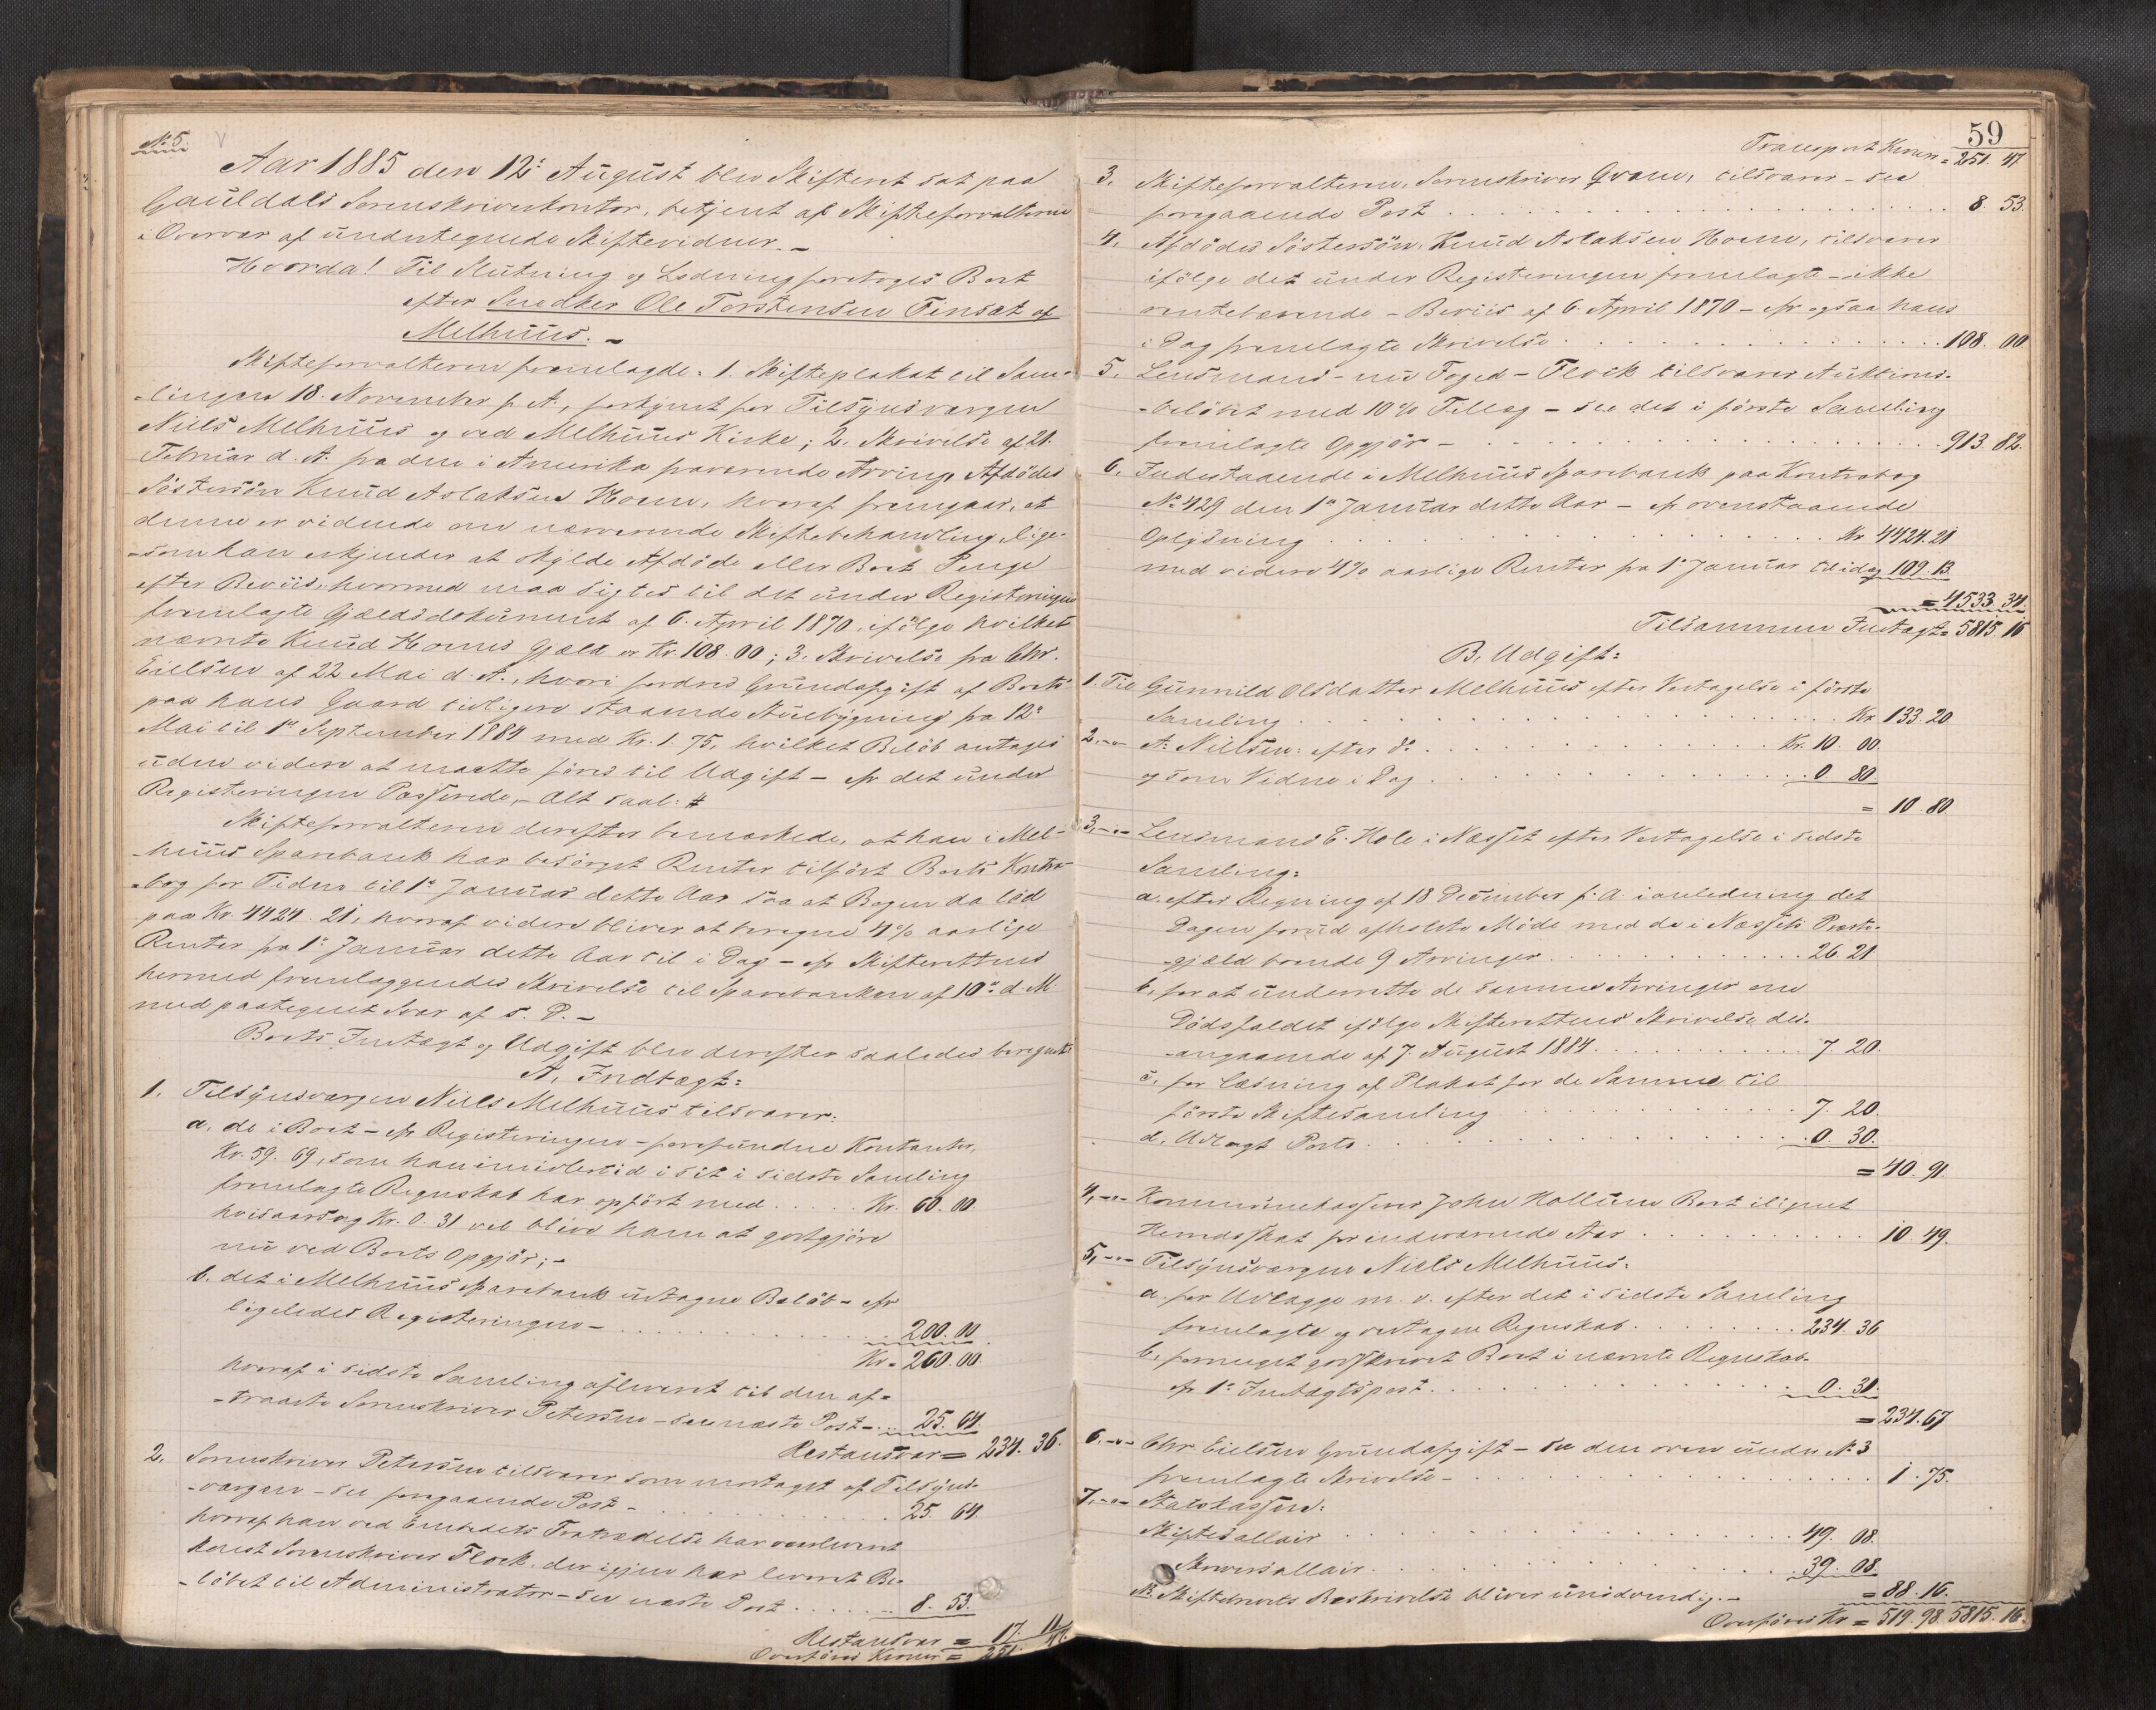 No 5.
Aar 1885 den 12te August blev Skifteret sat paa
Gauldals Sorenskriverkontor, betjent af Skifteforvalteren
i Overvær af undertegnede Skiftevidner. -
Hvorda! Til Slutning og Lodning foretoges Boet
efter Snedker Ole Torstensen Tinsat af
Melhuus. -
Skifteforvalteren fremlagde: 1. Skifteplakat til Sam-
-lingen 18. November f. A., forkynt for Tilsynsværgen
Niels Melhuus og ved Melhuus Kirke; 2. Skrivelse af 21.
Februar d. A. fra den i Amerika fraværende Arving, Afdödes
Söstersön Knud Aslaksen Hoem, hvoraf fremgaar, at
denne er vidende om nærværende Skiftebehandling, lige-
-som han erkjender at skylde Afdöde eller Boet Penge
efter Beviis, hvormed maa sigtes til det under Registeringen
fremlagte Gjældsdokument af 6. April 1870, ifölge hvilket
nævnte Knud Hoems Gjæld er Kr. 108.00; 3. Skrivelse fra Chr.
Eielsen af 22 Mai d. A., hvori fordres Grundafgift af Boets
paa hans Gaard tidligere staaende Stuebygning fra 12te
Mai til 1te September 1884 med Kr. 1.75, hvilket Belöb antages
uden videre at maatte föres til Udgift - cfr det under
Registeringen Passerede, - Alt saal: #
Skifteforvalteren derefter bemærkede, at han i Mel-
-huus Sparebank har besörget Renter tilfört Boets Kontra-
-bog for Tiden til 1te Januar dette Aar saa at Bogen da löd
paa Kr. 4424.21, hvoraf videre bliver at beregne 4% aarlige
Renter fra 1te Januar dette Aar til i Dag - cfr Skifterettens
hermed fremlæggendes Skrivelse til Sparebanken af 10de d. M.
med paategnet Svar af s. D. -
Boets Indtægt og Udgift blev derefter saaledes beregnet:
A, Indtægt:
1. Tilsynsværgen Niels Melhuus tilsvarer:
a. de i Boet - cfr Registeringen - forefundne Kontanter,
Kr. 59.69, som han imidlertid i sit i sidste Samling
fremlagte Regnskab har opfört med . . . . . Kr. 60.00
hvisaarsag Kr. 0.31 vil blive ham at godtgjöre
nu ved Boets Opgjör; -
b. det i Melhuus Sparebank udtagne Belöb - cfr
ligeledes Registeringen - . . . . . 200.00
Kr. = 260.00.
hvoraf i sidste Samling afleveret til den af-
-traadte Sorenskriver Petersen - see næste Post - . . 25.64.
Restansvar = 234.36.
2. Sorenskriver Petersen tilsvarer som modtaget af Tilsyns-
-værgen - see foregaaende Post - . . . . . 25.64.
hvoraf han ved Embedets Fratrædelse har overleveret
konst. Sorenskriver Flock, der igjen har leveret Be-
-löbet til Administrator - see næste Post . . . . . 8.53.
Restansvar = 17.11
Overföres Kroner = 251.47.
59
Transport Kroner = 251.47
3. Skifteforvalteren, Sorenskriver Qvam, tilsvarer - see
foregaaende Post . . . . . 8.53.
4. Afdödes Söstersön, Knud Aslaksen Hoem, tilsvarer
ifölge det under Registeringen fremlagte - ikke
rentebærende - Beviis af 6. April 1870 - cfr ogsaa hans
i Dag fremlagte Skrivelse . . . . . 108.00
5. Lensmand - nu Foged - Flock tilsvarer Auktions-
-belöbet med 10% Tillæg - see det i förste Samling
fremlagte Opgjör - . . . . . 913.82.
6. Indestaaende i Melhuus Sparebank paa Kontrabog
No 429 den 1te Januar dette Aar - cfr ovenstaaende
Oplysning . . . . . Kr 4424.21
med videre 4% aarlige Renter fra 1te Januar til idag 109.13
= 4533.34
Tilsammen Indtægt = 5815.16
B. Udgift:
1. Til Gunnild Olsdatter Melhuus efter Vedtagelse i förste
Samling . . . . . Kr 133.20
2. -"- A. Nielsen: efter do . . . . . Kr. 10.00.
og som Vidne i Dag . . . . . 0.80
= 10.80
3. -"- Lensmand E. Hole i Næsset efter Vedtagelse i sidste
Samling:
a. efter Regning af 18 December f. A. i anledning det
Dagen forud afholdte Möde med de i Næssets Præste-
-gjæld boende 9 Arvinger . . . . . 26.21
b. for at underrette de samme Arvinger om
Dödsfaldet ifölge Skifterettens Skrivelse des-
-angaaende af 7. August 1884 . . . . . 7.20.
c. for Læsning af Plakat for de Samme til
förste Skiftesamling . . . . . 7.20.
d. Udlagt Porto . . . . . 0.30.
= 40.91.
4. -"- Kommunekasserer John Hollum Boet ilignet
Herredsskat for indeværende Aar . . . . . 10.49.
5. -"- Tilsynsværgen Niels Melhuus:
a. for Udlægge m. v. efter det i sidste Samling
fremlagte og vedtagne Regnskab . . . . . 234.36
b. formeget godskrevet Boet i nævnte Regnskab -
cfr 1te Indtægtspost . . . . . 0.31.
= 234.67
6. -"- Chr. Eielsen Grundafgift - see den oven under No 3
fremlagte Skrivelse - . . . . . 1.75.
7. -"- Statskassen:
Skiftesallair . . . . . 49.08.
Skriversallair . . . . . 39.08.
NB Skiftebrevets Beskrivelse bliver unödvendig. -
= 88.16.
Overföres Kr = 519.98. 5815.16.